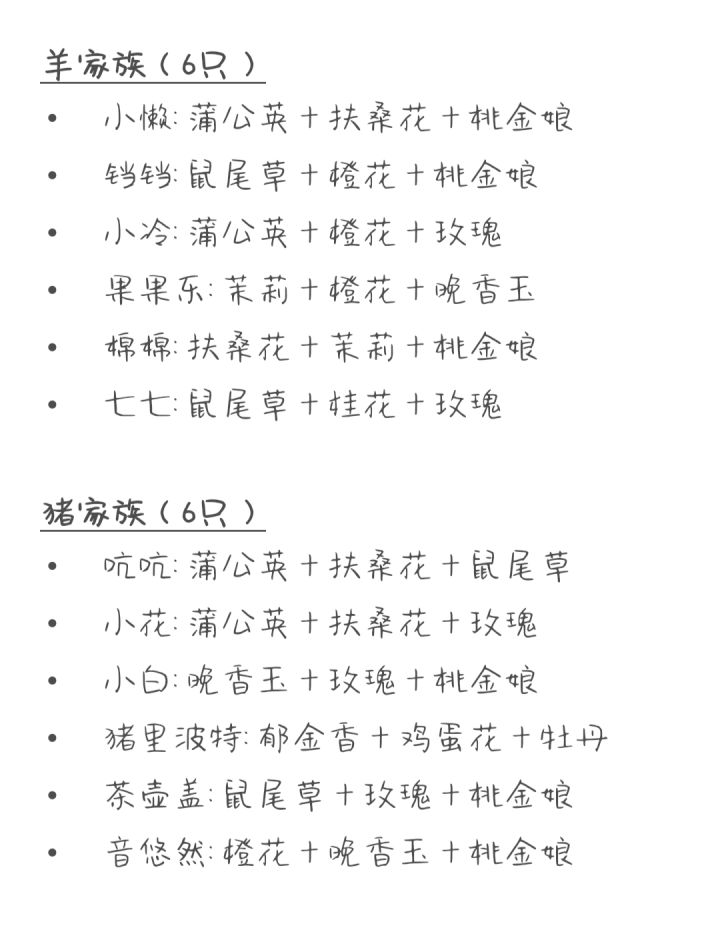 羊家族（6只）
• 小懒: 蒲公英＋扶桑花＋桃金娘
• 铛铛: 鼠尾草＋橙花＋桃金娘
• 小冷: 蒲公英＋橙花＋玫瑰
• 果果乐: 茉莉＋橙花＋晚香玉
• 棉棉: 扶桑花＋茉莉＋桃金娘
• 七七: 鼠尾草＋桂花＋玫瑰
猪家族（6只）
• 吭吭: 蒲公英＋扶桑花＋鼠尾草
• 小花: 蒲公英＋扶桑花＋玫瑰
• 小白: 晚香玉＋玫瑰＋桃金娘
• 猪里波特: 郁金香＋鸡蛋花＋牡丹
• 茶壶盖: 鼠尾草＋玫瑰＋桃金娘
• 音悠然: 橙花＋晚香玉＋桃金娘